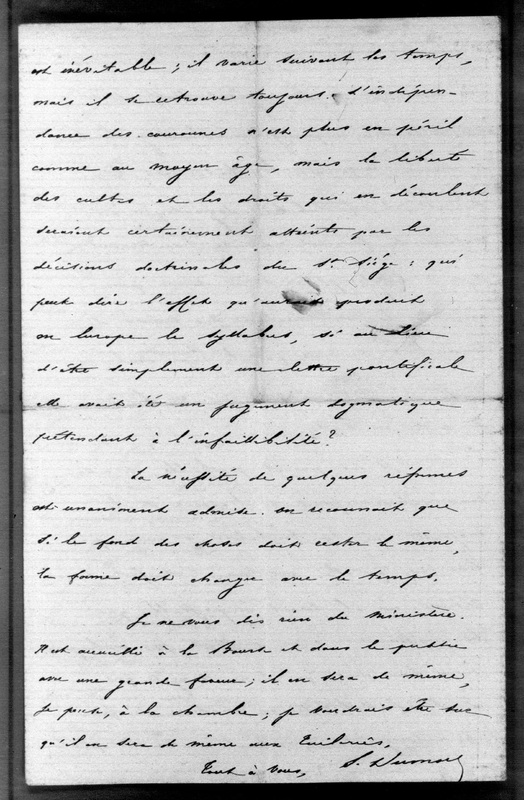 est inévitable ; il varie suivant les temps,
mais il se retrouve toujours. L'indépen-
dance des couronnes n'est plus en péril
comme au moyen âge, mais la liberté
des cultes et les droits qui en découlent
seraient certainement atteints par les
décisions doctrinales du St. Siége : qui
peut dire l'effet qu'aurait produit
en Europe le Syllabus, si au lieu
d'être simplement une lettre pontificale
elle avait été un jugement dogmatique
prétendant à l'infaillibilité ?
La nécessité de quelques réformes
est unanimement admise. On reconnait que
si le fond des choses doit rester le même,
la forme doit changer avec le temps.
Je ne vous dis rien du ministère.
Il est accueilli à la Bourse et dans le public
avec une grande faveur ; il en sera de même,
je pense, à la chambre ; je voudrais être sûr
qu'il en sera de même aux Tuileries.
Tout à vous, S. Dumon